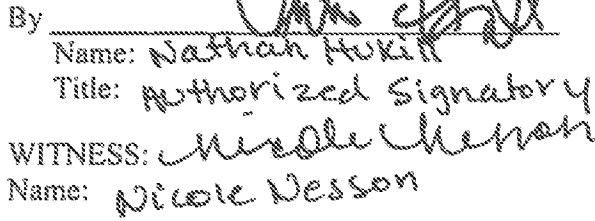 By
Name: Nathan Hukill
Title: Authorized Signatory
WITNESS: Nicole Nesson
Name: Nicole Nesson